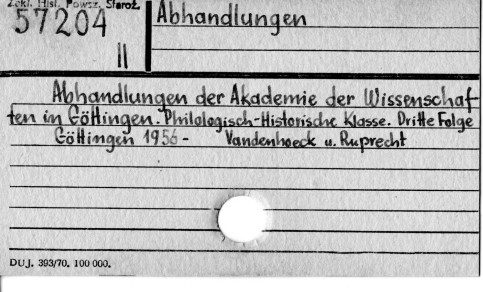 Zakł. Hist. Powsz. Staroż.
57204
II
Abhandlungen
Abhandlungen der Akademie der Wissenschaf
ten in Göttingen. Philologisch-Historische Klasse. Dritte Folge
Göttingen 1956 - Vandenhoeck u. Ruprecht
DUJ. 393/70. 100 000.